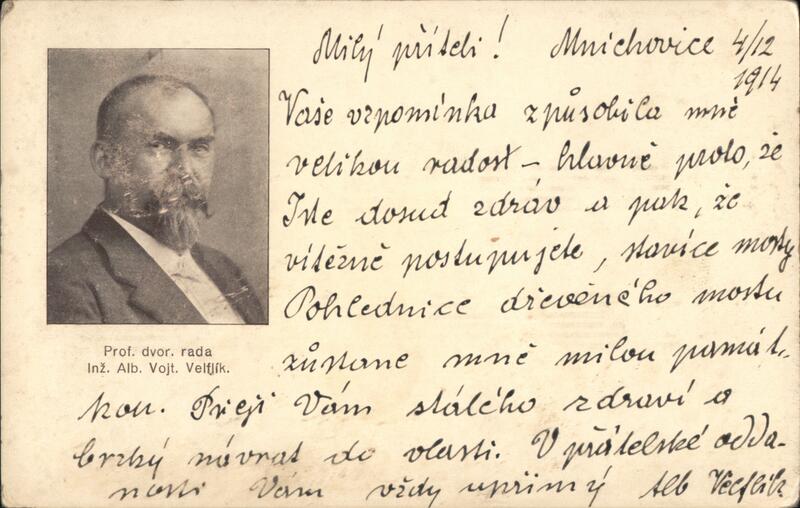 Milý příteli! Mnichovice 4/12
1914
Vaše vzpomínka způsobila mně
velikou radost – hlavně proto, že
Jste dosud zdráv a pak, že
vítězně postupujete, stavíce mosty
Pohlednice dřevěného mostu
zůstane mně milou památ-
kou. Přeji Vám stálého zdraví a
brzký návrat do vlasti. V přátelské odda-
nosti Vám vždy upřímný Alb Velflík
Prof. dvor. rada
Inž. Alb. Vojt. Velflík.